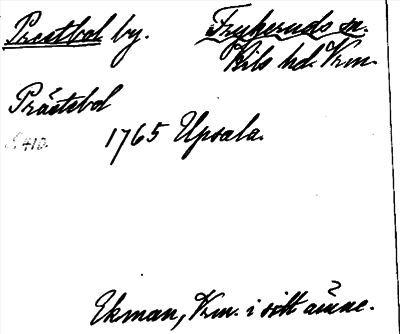 Prestbol by. Frykeruds sn.
Kils hd. Vrm.
Prästebol
S. 410.
1765 Upsala.
Ekman, Vrm. i sitt ämne.